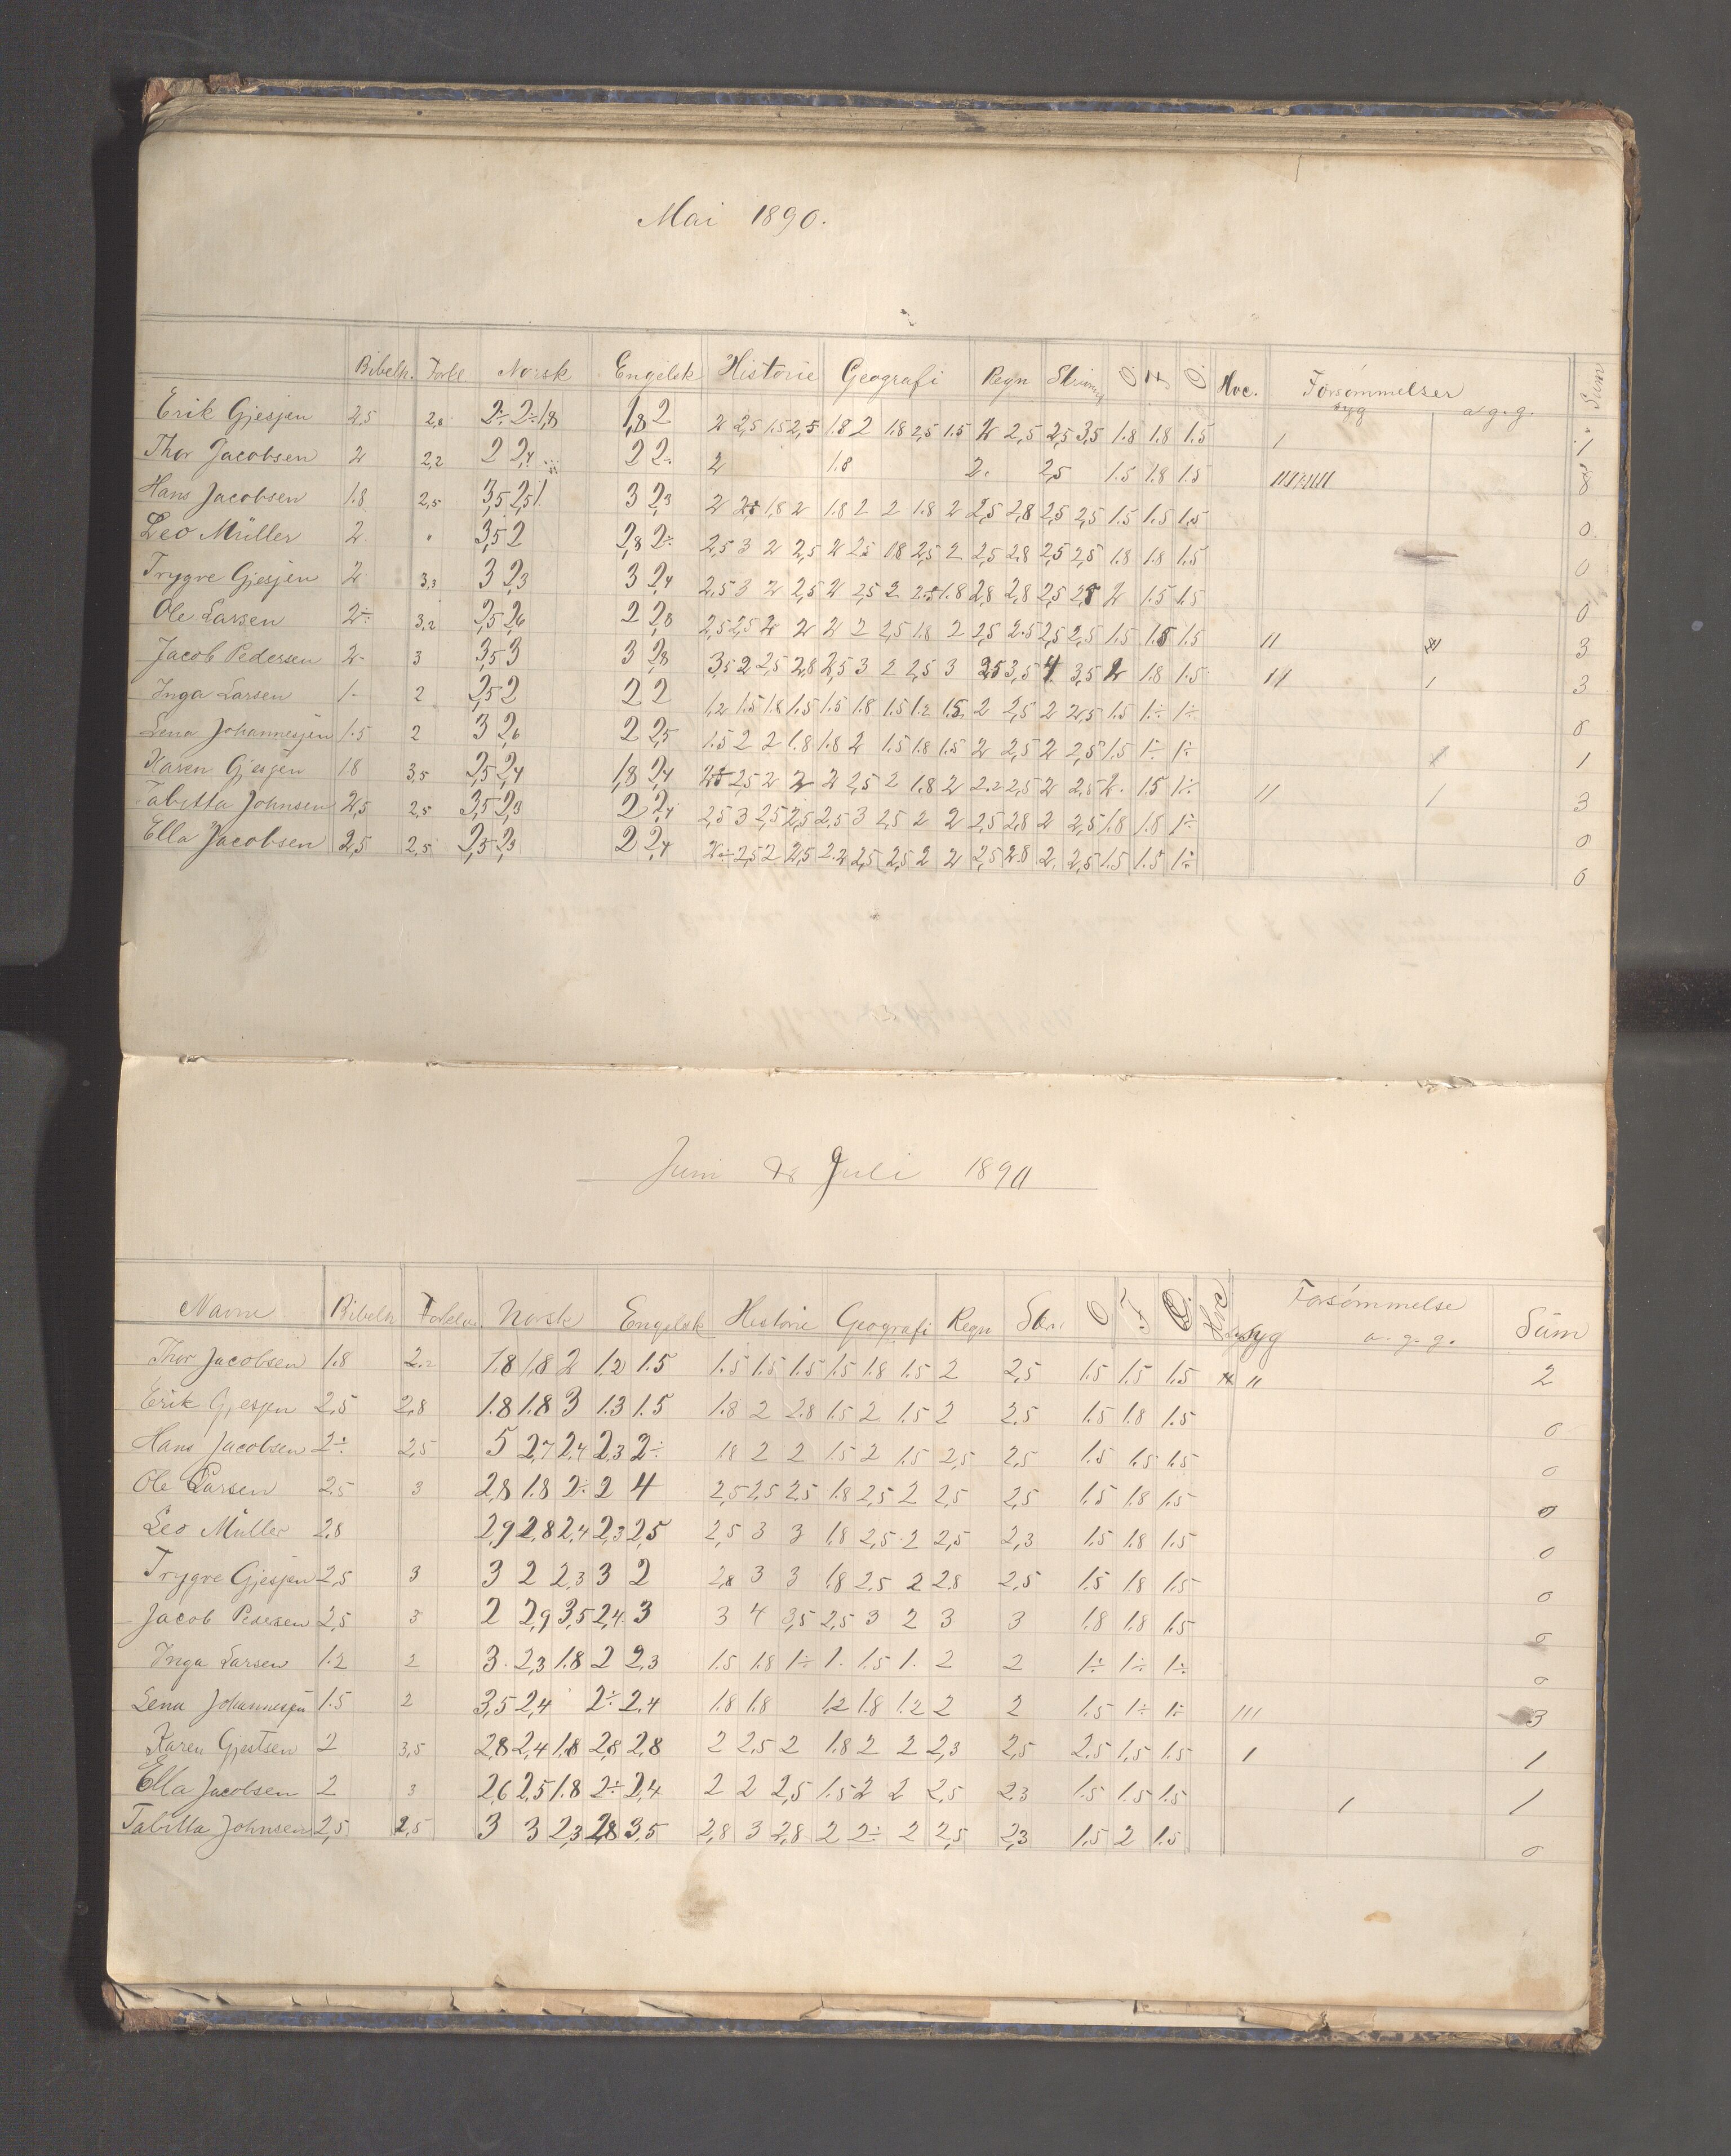 Mai 1890.
Bibelh. Forkl. Norsk Engelsk Historie Geografi Regn Skrivning O. F. O. Hvc. Forsømmelser Sum
syg a.g.g.
Erik Gjesjen 2,5 2,8 2÷ 2÷ 1,8 1,8 2 2 2,5 1.5 2,5 1.8 2 1.8 2,5 1.5 2 2,5 2,5 3,5 1.8 1.8 1.5 1 1
Thor Jacobsen 2 2,2 2 2,4 2 2÷ 2 1.8 2. 2,5 1.5 1.8 1.5 8
Hans Jacobsen 1.8 2,5 3,5 2,5 3 2,3 2 2,5 1,8 2 1.8 2 2 1.8 2 2,5 2,8 2,5 2,5 1.5 1.5 1.5 0
Leo Müller 2. " 3,5 2 2,8 2÷ 2,5 3 2 2,5 2 2,5 1.8 2,5 2 2,5 2.8 2,5 2,5 1.8 1.8 1.5 0
Trygve Gjesjen 2 3,3 3 2,3 3 2,4 2,5 3 2 2,5 2 2,5 2 2,5 1.8 2,8 2,8 2,5 2,5 2 1.5 1.5 0
Ole Larsen 2÷ 3,2 2,5 2,6 2 2,8 2,5 2,5 2 2 2 2 2,5 1.8 2 2,5 2.5 2,5 2,5 1.5 1.8 1.5 11 3
Jacob Pedersen 2 3 3,5 3 3 2,8 3,5 2 2,5 2,8 2,5 3 2 2,5 3 2,5 3,5 4 3,5 2 1.8 1.5 11 1 3
Inga Larsen 1- 2 2,5 2 2 2 1,2 1.5 1.8 1.5 1.5 1.8 1.5 1.2 1.5 2 2,5 2 2,5 1.5 1÷ 1÷ 0
Lena Johannesjen 1.5 2 3 2,6 2 2,5 1.5 2 2 1.8 1.8 2 1.5 1.8 1.5 2 2,5 2 2,5 1.5 1÷ 1÷ 1 1
Karen Gjesjen 1.8 3,5 2,5 2,4 1,8 2,4 2,5 2,5 2 2 2 2,5 2 1.8 2 2.2 2,5 2 2.5 2. 1.5 1÷ 11 1 3
Tabitta Johnsen 2,5 2,5 3,5 2,3 2 2,4 2,5 3 2,5 2,5 2,5 3 2,5 2 2 2,5 2.8 2 2,5 1.8 1.8 1÷ 0
Ella Jacobsen 2,5 2,5 2,5 2,3 2 2,4 2÷ 2,5 2 2,5 2.2 2,5 2,5 2 2 2,5 2.8 2. 2,5 1.5 1.5 1÷ 0
Juni & Juli 1890
Navne Bibelh Forkla. Norsk Engelsk Historie Geografi Regn Skr. O F O. Hvc syg Forsømmelse a.g.g. Sum
Thor Jacobsen 1.8 2.2 1.8 1,8 2 1.2 1.5 1.5 1.5 1.5 1.5 1.8 1.5 2 2,5 1.5 1.5 1.5 11 2
Erik Gjesjen 2,5 2,8 1.8 1.8 3 1.3 1.5 1.8 2 2.8 1.5 2 1.5 2 2,5 1.5 1.8 1.5 0
Hans Jacobsen 2÷ 2,5 5 2,7 2,4 2,3 2÷ 1.8 2 2 1.5 2 1.5 2,5 2,5 1.5 1.5 1.5 0
Ole Larsen 2,5 3 2,8 1.8 2÷ 2 4 2,5 2,5 2,5 1.8 2,5 2 2,5 2,5 1.5 1.8 1.5 0
Leo Müller 2,8 2,9 2,8 2,4 2,3 2,5 2,5 3 3 1.8 2,5 2 2,5 2,3 1.5 1.8 1.5 0
Trygve Gjesjen 2,5 3 3 2 2,3 3 2 2,8 3 3 1.8 2,5 2 2.8 2,5 1.5 1.8 1.5 0
Jacob Pedersen 2,5 3 2 2,9 3,5 2,4 3 3 4 3,5 2,5 3 2 3 3 1.8 1.8 1.5 0
Inga Larsen 1.2 2 3 2,3 1.8 2 2,3 1.5 1.8 1÷ 1. 1.5 1. 2 2 1÷ 1÷ 1÷ 0
Lena Johannesjen 1.5 2 3,5 2,4 2÷ 2.4 1.8 1.8 1,2 1.8 1.2 2 2 1.5 1÷ 1÷ 111 3
Karen Gjestsen 2 3,5 2,8 2,4 1.8 2,8 2,8 2 2,5 2 1.8 2 2 2,3 2,5 2.5 1,5 1.5 1 1
Ella Jacobsen 2 3 2,6 2,5 1.8 2÷ 2,4 2 2 2,5 1.5 2 2 2,5 2,3 1.5 1.5 1.5 1 1
Tabitta Johnsen 2,5 2,5 3 3 2,3 2,8 3,5 2,8 3 2,8 2 2÷ 2 2,5 2,3 1.5 2 1.5 0